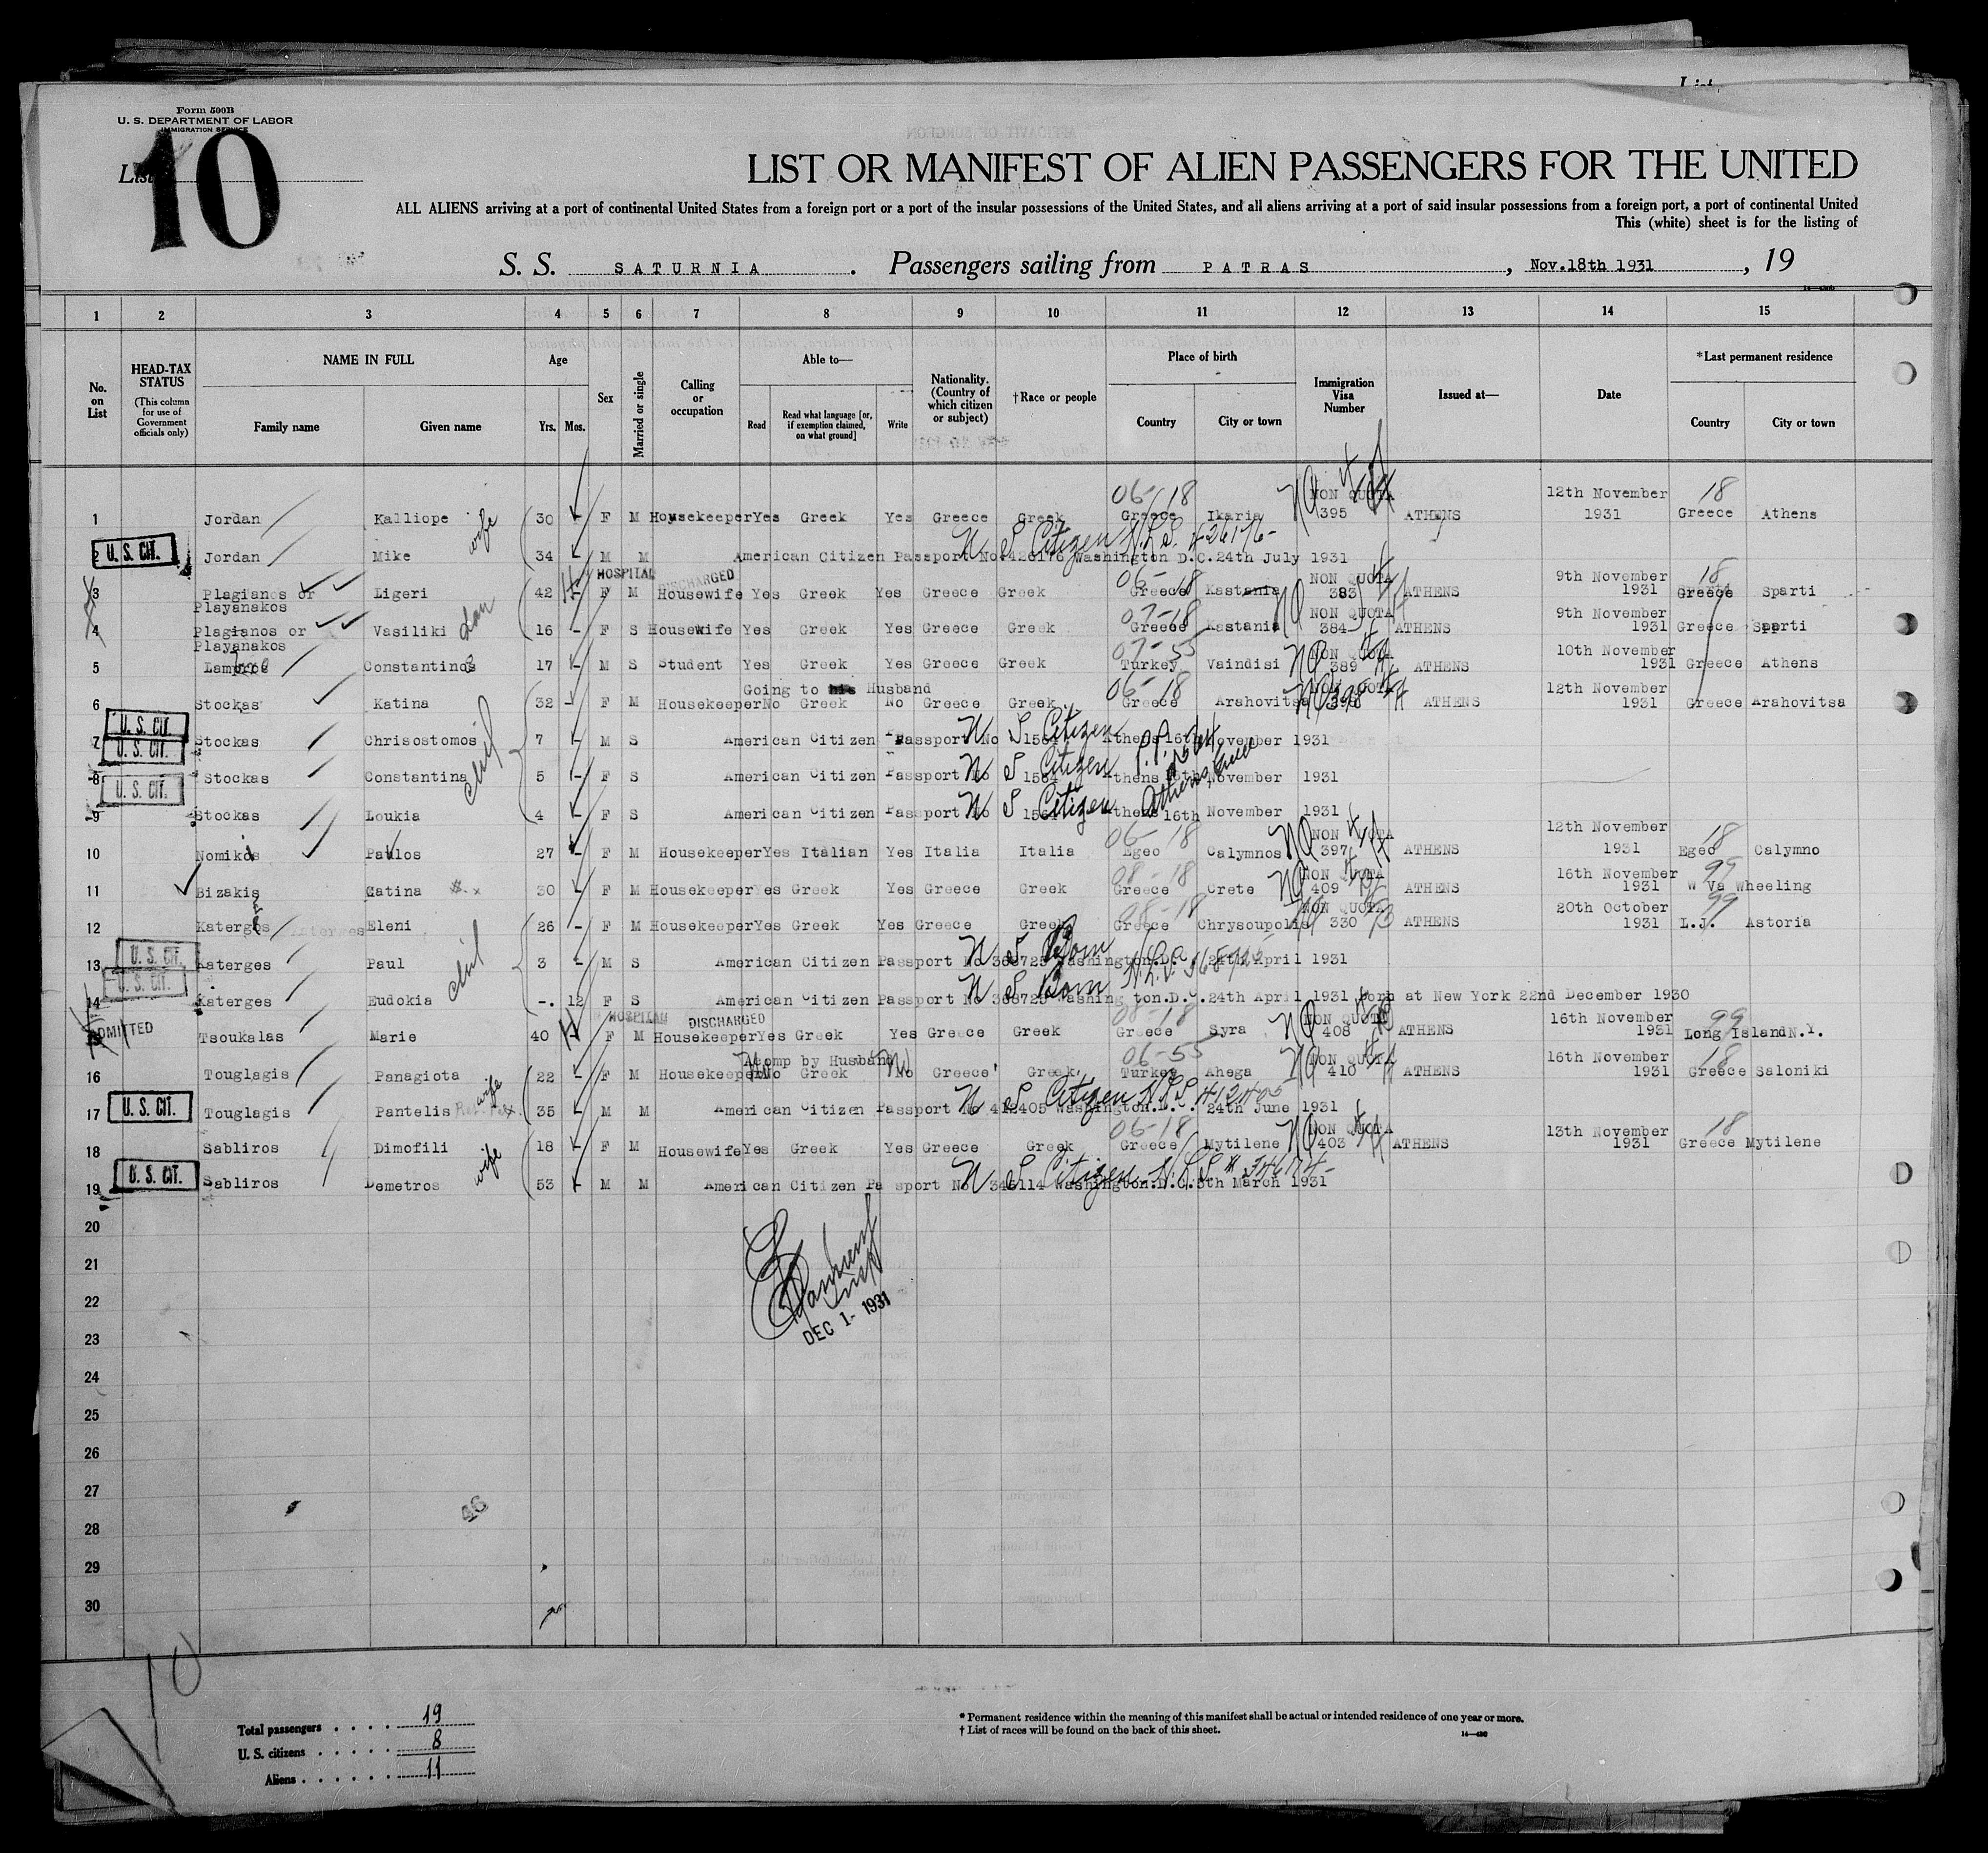 Form 500B
U. S. DEPARTMENT OF LABOR
IMMIGRATION SERVICE
List
10
LIST OR MANIFEST OF ALIEN PASSENGERS FOR THE UNITED
ALL ALIENS arriving at a port of continental United States from a foreign port or a port of the insular possessions of the United States, and all aliens arriving at a port of said insular possessions from a foreign port, a port of continental United
This (white) sheet is for the listing of
S. S. SATURNIA . Passengers sailing from PATRAS , Nov.18th 1931 , 19
1 2 3 4 5 6 7 8 9 10 11 12 13 14 15
No. on List
HEAD-TAX STATUS (This column for use of Government officials only)
NAME IN FULL Family name Given name
Age Yrs. Mos.
Sex
Married or single
Calling or occupation
Able to— Read Read what language [or, if exemption claimed, on what ground] Write
Nationality. (Country of which citizen or subject)
†Race or people
Place of birth Country City or town
Immigration Visa Number
Issued at—
Date
*Last permanent residence Country City or town
06-18 NON QUOTA 12th November 18
1 Jordan Kalliope wife 30 - F M Housekeeper Yes Greek Yes Greece Greek Greece Ikaria NQ 395 ATHENS 1931 Greece Athens
U S Citizen
2 U. S. CIT. Jordan Mike 34 - M M American Citizen Passport No 426176 Washington D.C. 24th July 1931
HOSPITAL DISCHARGED 06-18 NON QUOTA 9th November 18
3 Plagianos or Ligeri 42 - F M Housewife Yes Greek Yes Greece Greek Greece Kastania NQ 383 ATHENS 1931 Greece Sparti
Playanakos 07-18 NON QUOTA 9th November
4 Plagianos or Vasiliki 16 - F S Housewife Yes Greek Yes Greece Greek Greece Kastania 384 ATHENS 1931 Greece Sparti
Playanakos 07-55 NON QUOTA 10th November
5 Constantinos 17 - M S Student Yes Greek Yes Greece Greek Turkey Vaindisi NQ 389 ATHENS 1931 Greece Athens
Going to his Husband 06-18 12th November
6 Stockas Katina 32 - F M Housekeeper No Greek No Greece Greek Greece Arahovitsa NQ 398 ATHENS 1931 Greece Arahovitsa
7 U. S. CIT. Stockas Chrisostomos 7 - M S American Citizen Passport No U S Citizen Athens 16th November 1931
8 U. S. CIT. Stockas Constantina 5 - F S American Citizen Passport No U S Citizen Athens 16th November 1931
9 U. S. CIT. Stockas Loukia 4 - F S American Citizen Passport No U S Citizen Athens 16th November 1931
06-18 NON QUOTA 12th November 18
10 Nomikos Paulos 27 - F M Housekeeper Yes Italian Yes Italia Italia Egeo Calymnos NQ 397 ATHENS 1931 Egeo Calymno
08-18 NON QUOTA 16th November 99
11 Bizakis Catina 30 - F M Housekeeper Yes Greek Yes Greece Greek Greece Crete NQ 409 ATHENS 1931 W Va Wheeling
08-18 NON QUOTA 20th October 99
12 Katerges Eleni 26 - F M Housekeeper Yes Greek Yes Greece Greek Greece Chrysoupolis 330 ATHENS 1931 L.J. Astoria
13 U. S. CIT. Katerges Paul 3 - M S American Citizen Passport No 368725 U S Born Washington.D.C. 24th April 1931
14 U. S. CIT. Katerges Eudokia -. 12 F S American Citizen Passport No 368725 U S Born Washington.D.C. 24th April 1931 born at New York 22nd December 1930
ADMITTED HOSPITAL DISCHARGED 08-18 NON QUOTA 16th November 99
15 Tsoukalas Marie 40 F M Housekeeper Yes Greek Yes Greece Greek Greece Syra NQ 408 ATHENS 1931 Long Island N.Y.
Acomp by Husband 06-55 NON QUOTA 16th November 18
16 Touglagis Panagiota wife 22 - F M Housekeeper No Greek No Greece Greek Turkey Ahega 410 ATHENS 1931 Greece Saloniki
17 U. S. CIT. Touglagis Pantelis 35 - M M American Citizen Passport No 412405 U S Citizen Washington.D.C. 24th June 1931
06-18 NON QUOTA 13th November 18
18 Sabliros Dimofili wife 18 - F M Housewife Yes Greek Yes Greece Greek Greece Mytilene NQ 403 ATHENS 1931 Greece Mytilene
19 U. S. CIT. Sabliros Demetros 53 - M M American Citizen Passport No U S Citizen Washington.D.C. 5th March 1931
20
21
22
DEC 1- 1931
23
24
25
26
27
46
28
29
30
10
Total passengers . . . . 19
U. S. citizens . . . . . 8
Aliens . . . . . . 11
* Permanent residence within the meaning of this manifest shall be actual or intended residence of one year or more.
† List of races will be found on the back of this sheet.
14—430